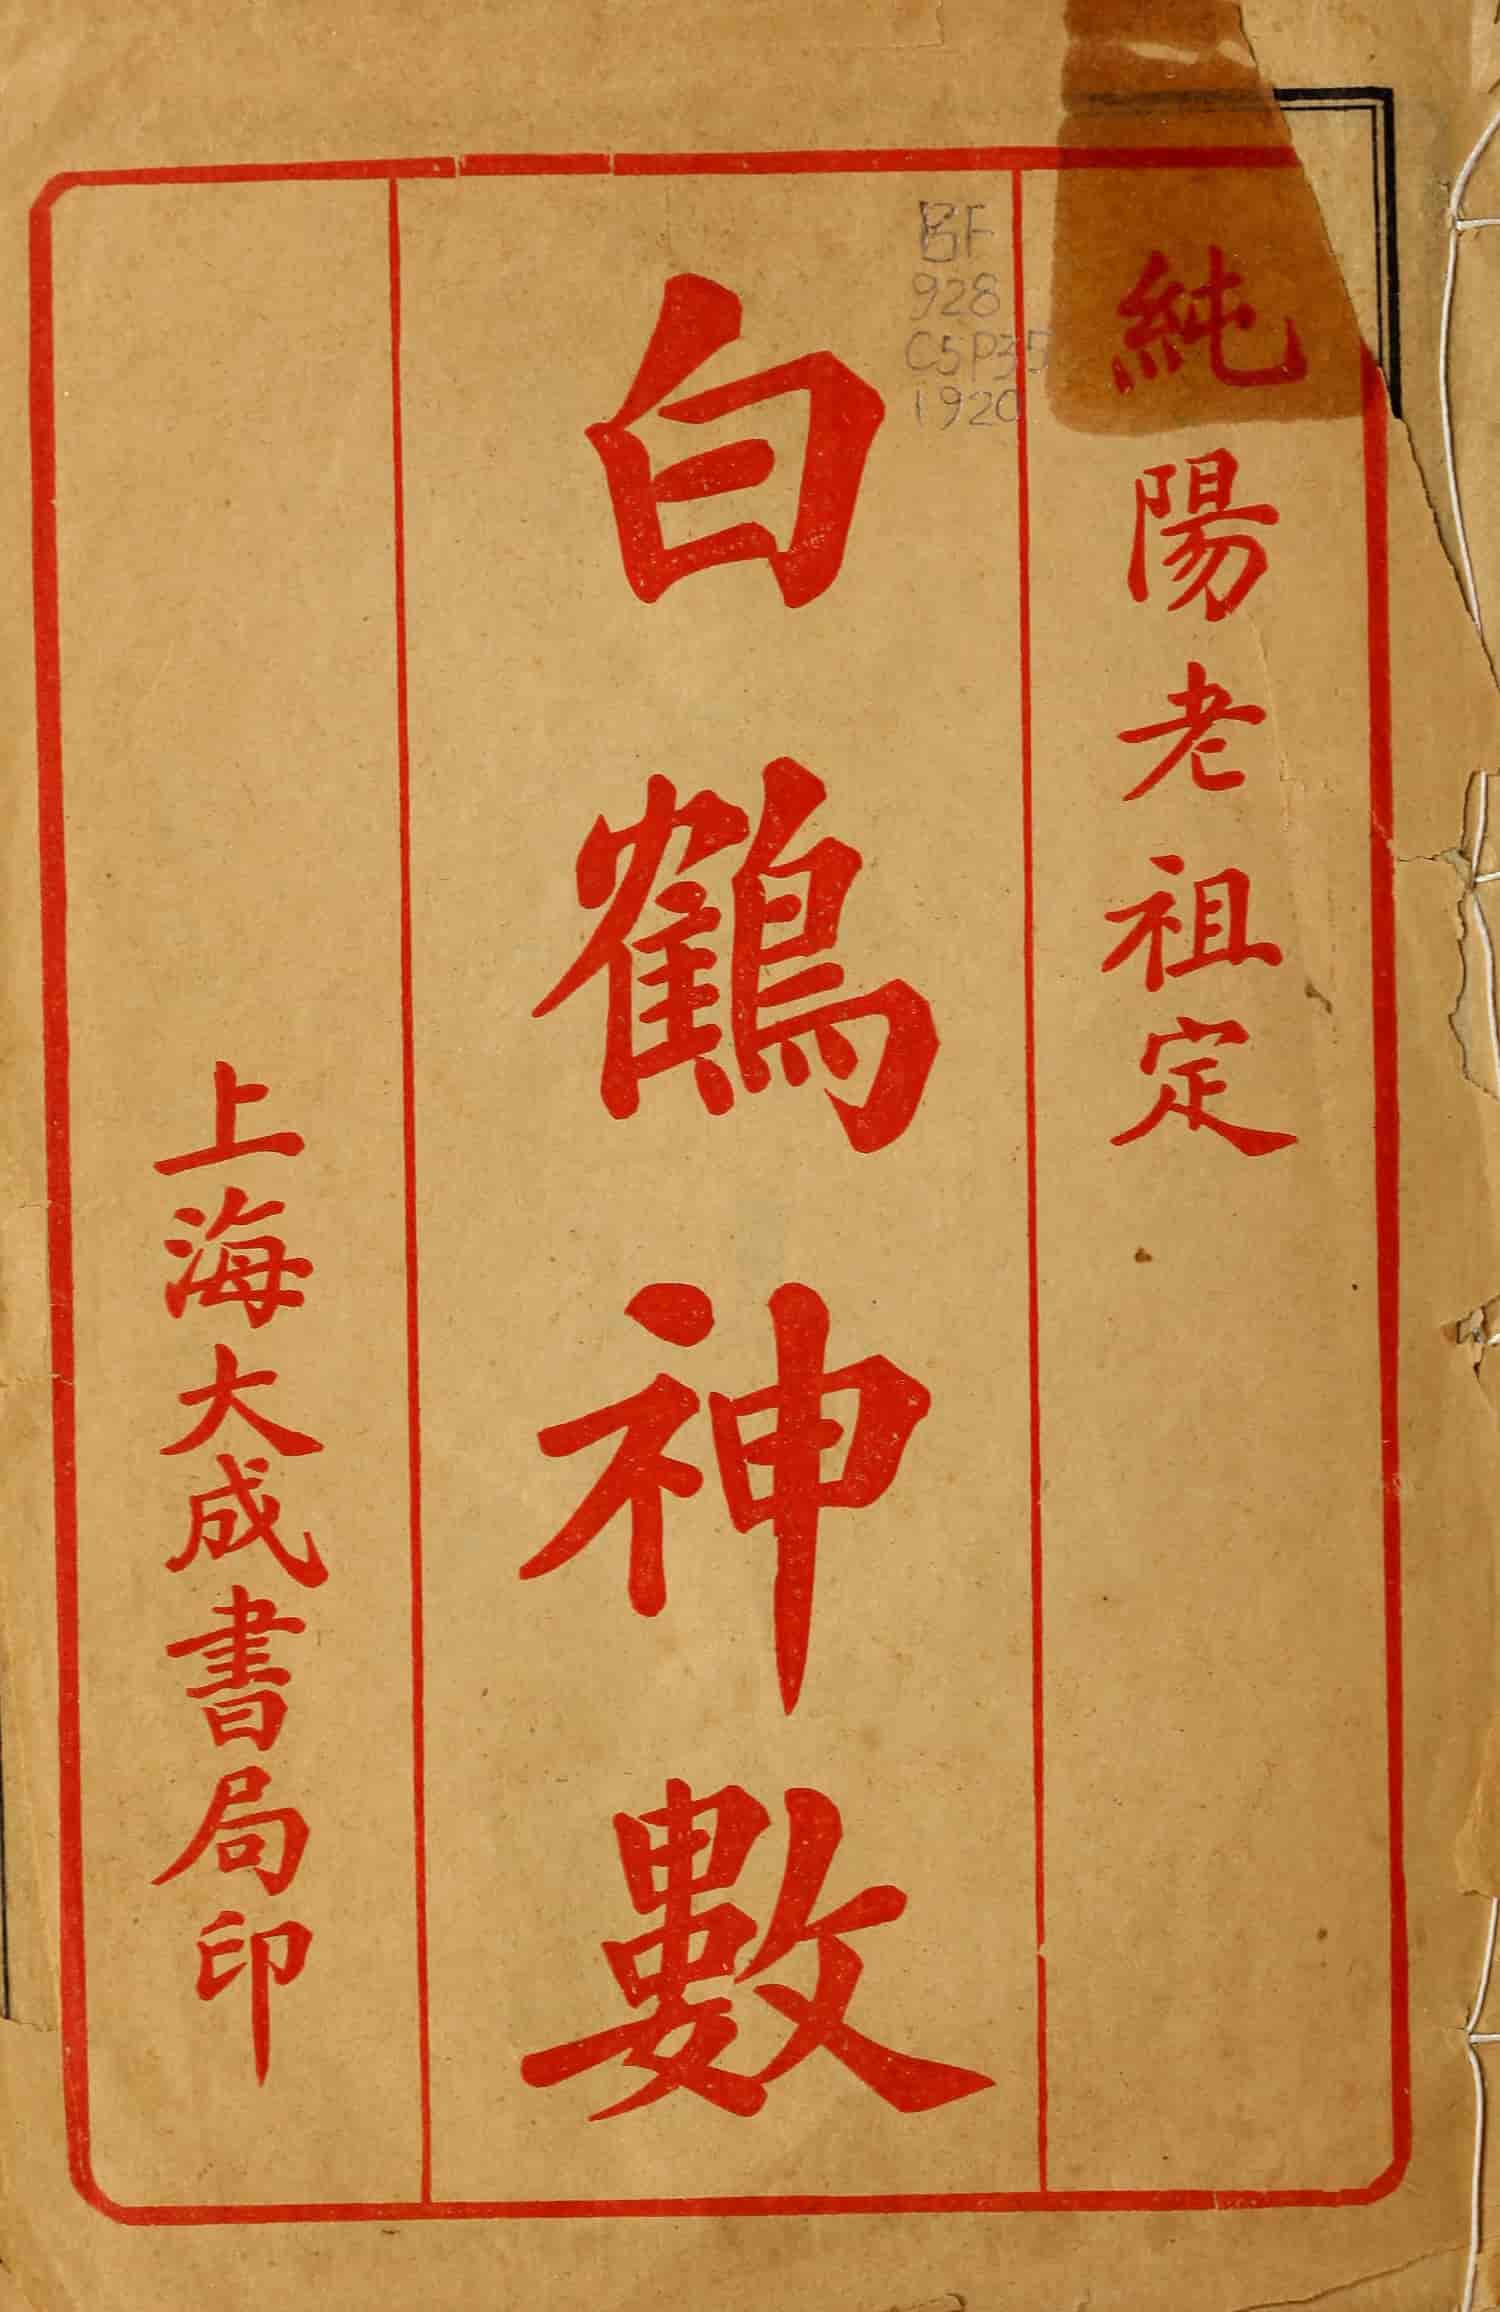 純陽老祖定
白鶴神數
上海大成書局印
BF
928
C5P35
1920